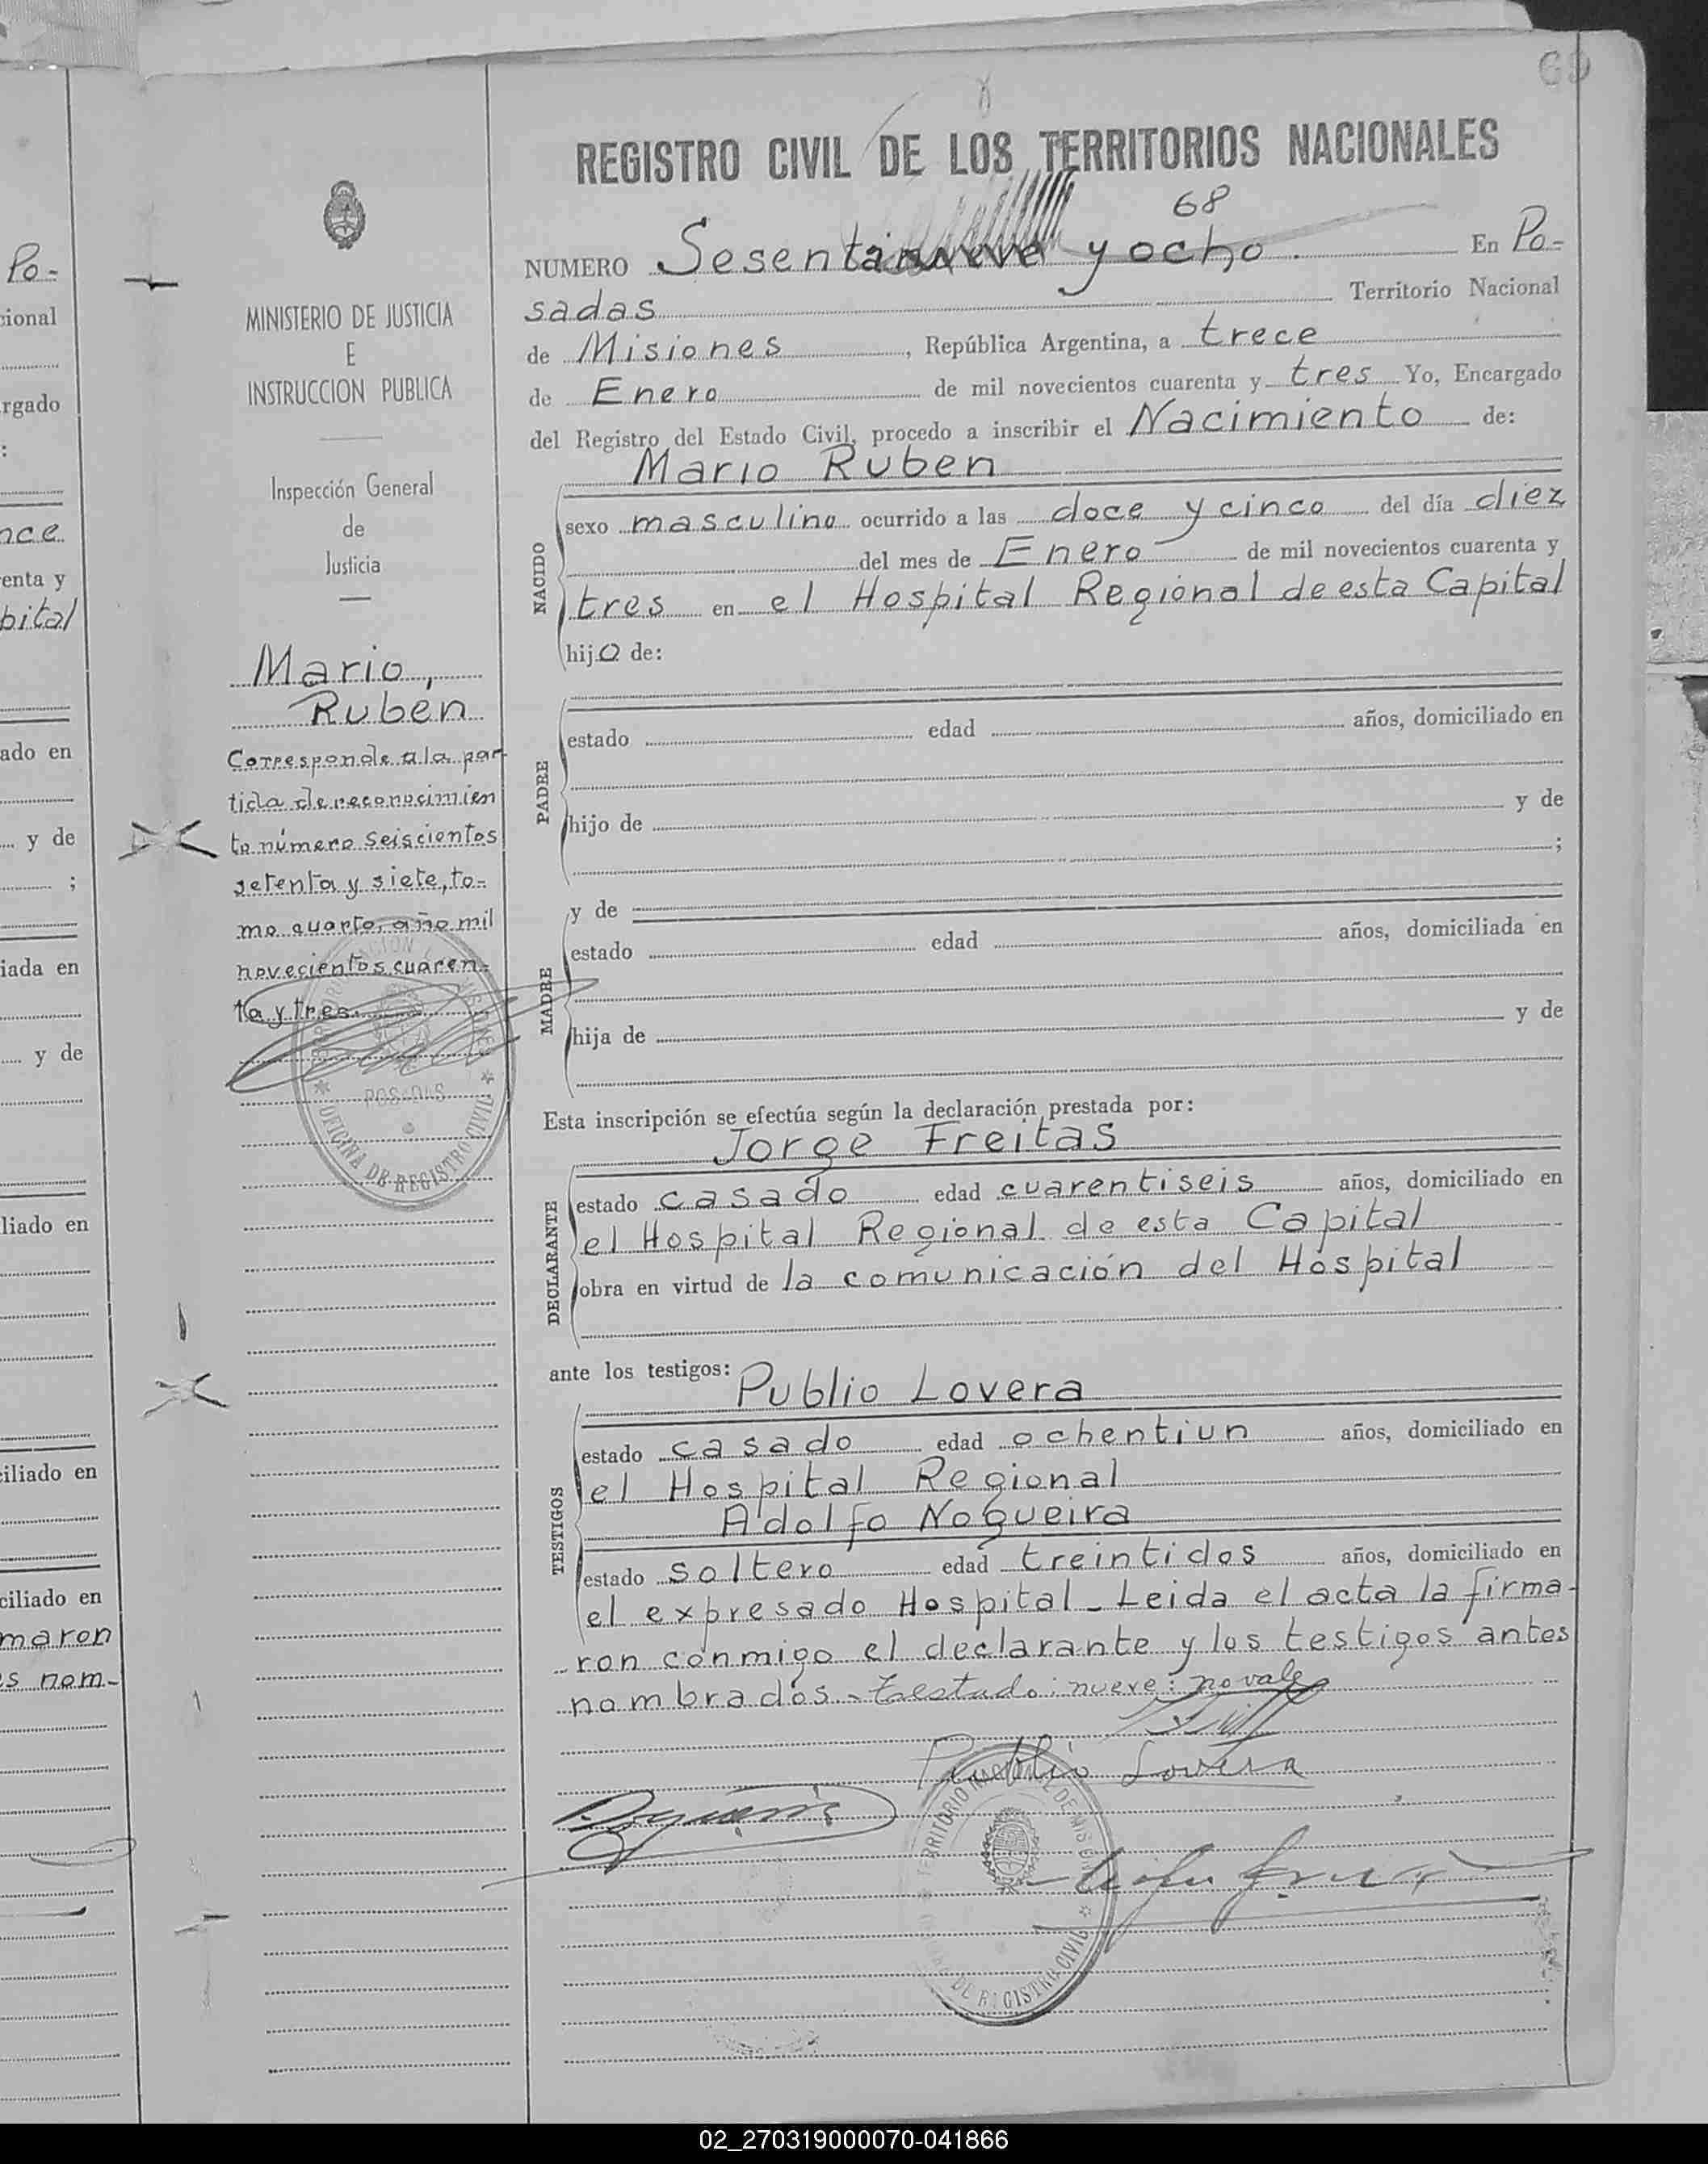 69
REGISTRO CIVIL DE LOS TERRITORIOS NACIONALES
68
NUMERO Sesentinueve y ocho. En Po-
sadas Territorio Nacional
de Misiones, República Argentina, a trece
de Enero de mil novecientos cuarenta y tres Yo, Encargado
del Registro del Estado Civil, procedo a inscribir el Nacimiento de:
Mario Ruben
NACIDO
sexo masculino ocurrido a las doce y cinco del día diez
del mes de Enero de mil novecientos cuarenta y
tres en el Hospital Regional de esta Capital
hijo de:
PADRE
estado edad años, domiciliado en
hijo de y de
;
MADRE
y de
estado edad años, domiciliada en
hija de y de
Esta inscripción se efectúa según la declaración prestada por:
Jorge Freitas
DECLARANTE
estado casado edad cuarentiseis años, domiciliado en
el Hospital Regional de esta Capital
obra en virtud de la comunicación del Hospital
ante los testigos:
Publio Lovera
TESTIGOS
estado casado edad ochentiun años, domiciliado en
el Hospital Regional
Adolfo Nogueira
estado soltero edad treintidos años, domiciliado en
el expresado Hospital_Leida el acta la firma-
ron conmigo el declarante y los testigos antes
nombrados._Testado: nueve: no vale
Publio Lovera
DE REGISTRO CIVIL
MINISTERIO DE JUSTICIA
E
INSTRUCCION PUBLICA
Inspección General
de
Justicia
Mario,
Ruben
Corresponde a la par
tida de reconocimien
to número seiscientos
setenta y siete, to-
mo cuarto, año mil
novecientos cuaren-
ta y tres.
POSADAS
OFICINA DE REGISTRO CIVIL
Po-
cional
rgado
:
nce
enta y
pital
ado en
y de
;
iada en
y de
liado en
ciliado en
ciliado en
maron
s nom-
02_270319000070-041866